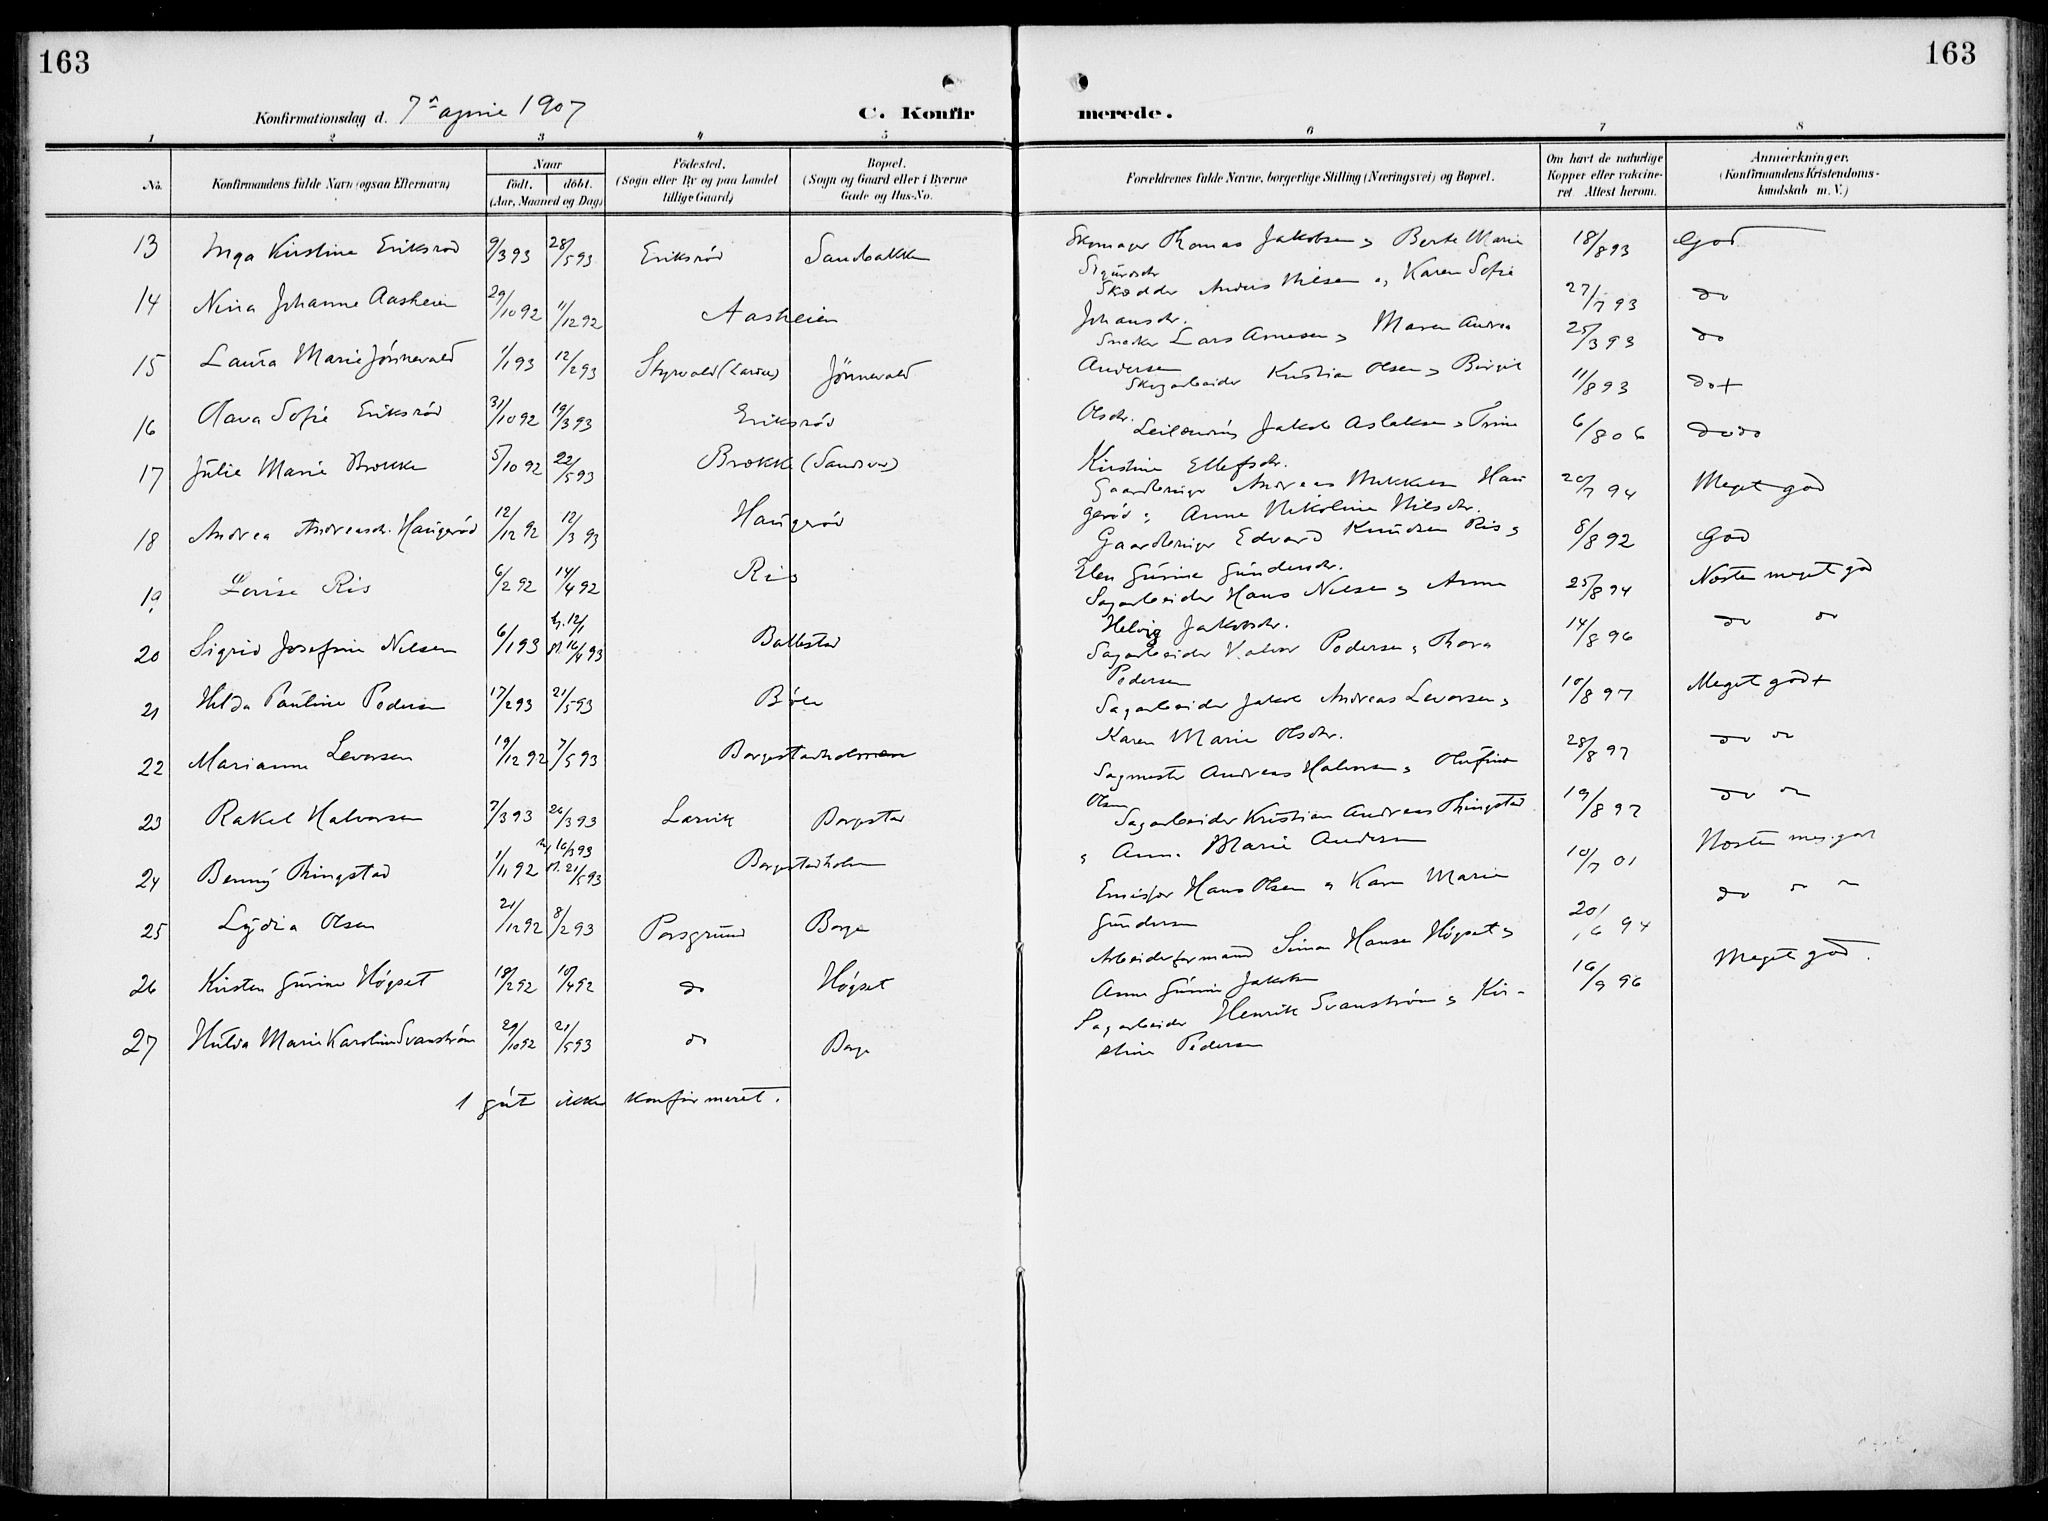 163
163
Konfirmationsdag d. 7de april 1907
C. Konfir
merede.
1 2 3 4 5 6 7 8
No.
Konfirmandens fulde Navn (ogsaa Efternavn)
Naar
født. døbt.
(Aar, Maaned og Dag)
Fødested.
(Sogn eller By og paa Landet
tillige Gaard)
Bopæl.
(Sogn og Gaard eller i Byerne
Gade og Hus-No.
Forældrenes fulde Navne, borgerlige Stilling (Næringsvei) og Bopæl.
Om havt de naturlige
Kopper eller vakcine-
ret Attest herom.
Anmærkninger.
(Konfirmandens Kristendoms-
kundskab m. V.)
13 Inga Kirstine Eriksrød 9/3 93 28/5 93 Eriksrød Sandbakken Skomager Thomas Jakobsen og Berte Marie 18/8 93 God
Sigurdsdr
14 Nina Johanne Aasheien 29/10 92 11/12 92 Aasheien Skrædder Anders Nilsen og Karen Sofie 27/7 93 do
Johansdr.
15 Laura Marie Jønnevald 1/1 93 12/2 93 Styrvold (Lardal) Jønnevald Snedker Lars Arnesen og Maren Andrea 25/3 93 do
Andersen
16 Olava Sofie Eriksrød 31/10 92 19/3 93 Eriksrød Skogarbeider Kristian Olsen og Birgit 11/8 93 do +
Olsdr.
17 Julie Marie Brække 5/10 92 22/5 93 Brække (Sandsvær) Leilænding Jakob Aslaksen og Trine 6/8 06 do do
Kirstine Ellefsdr.
18 Andrea Andreasdr. Haugerød 12/12 92 12/3 93 Haugerød Gaardbruger Andreas Mikkelsen Hau 20/7 94 Meget god
gerød og Anne Nikoline Nilsdr.
19 Lovise Ris 6/2 92 14/4 92 Ris Gaardbruger Edvard Knudsen Ris og 8/8 92 God
Elen Gurine Gundersdr.
20 Sigrid Josefine Nilsen 6/1 93 hj. 12/1 kl. 16/4 93 Ballestad Sagarbeider Hans Nilsen og Anne 25/8 94 Næsten meget god
Helvig Jakobsdr.
21 Hilda Pauline Pedersen 17/2 93 21/5 93 Bølen Sagarbeider Halvor Pedersen og Thora 14/8 96 do do
Pedersen
22 Marianne Levorsen 19/12 92 7/5 93 Borgestadholmen Sagarbeider Jakob Andreas Levorsen og 10/8 97 Meget god +
Karen Marie Olsdr.
23 Rakel Halvorsen 7/3 93 26/3 93 Larvik Borgestad Sagmester Andreas Halvorsen og Olufine 28/8 97 do do
Olsen
24 Benny Thingstad 1/11 92 hj. 16/3 93 kl. 21/5 93 Borgestadholm Sagarbeider Kristian Andreas Thingstad 19/8 97 do do
og Anne Marie Andersen
25 Lydia Olsen 21/12 92 8/2 93 Porsgrund Borge Emissær Hans Olsen og Karen Marie 10/7 01 Næsten meg. god
Gundersen
26 Kirsten Gurine Høgset 18/2 92 10/4 92 do Høgset Arbeiderformand Simon Hansen Høgset og 20/6 94 do do do
Anne Gurine Jakobsen
27 Hulda Marie Karoline Svanstrøm 29/10 92 21/5 93 do Borge Sagarbeider Henrik Svanstrøm og Kir- 16/9 96 Meget god.
stine Pedersen
1 gut ikke konfirmeret.